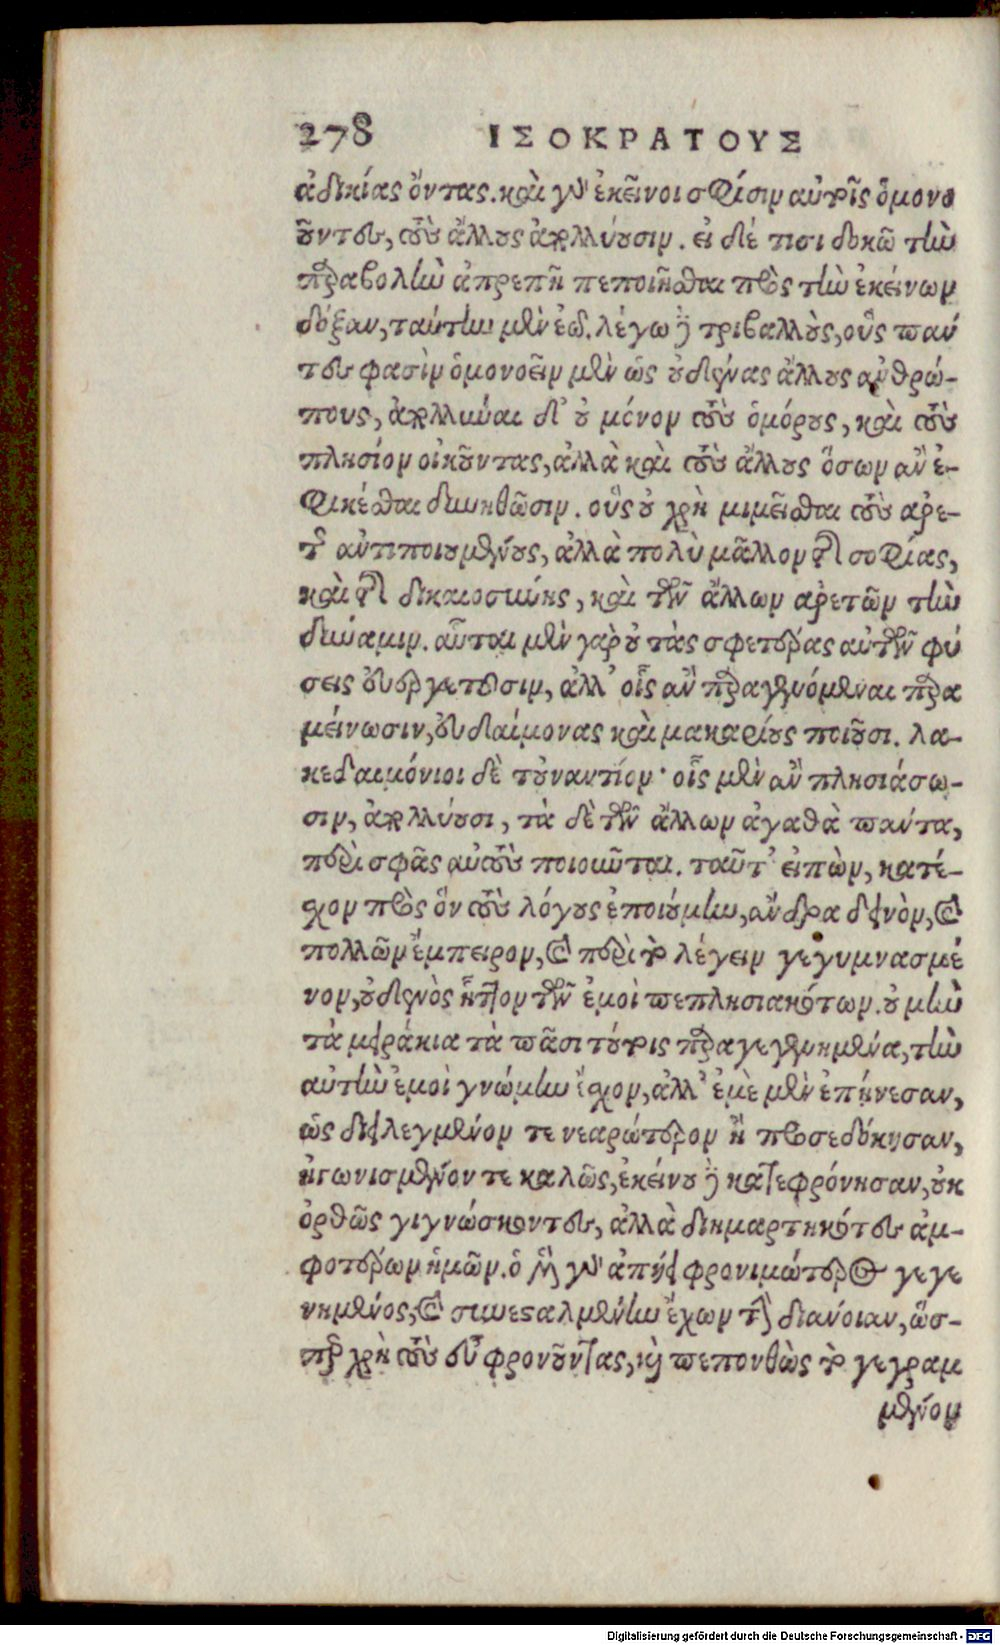 278 ΙΣΟΚΡΑΤΟΥΣ
ἀδικίας ὄντας. καὶ γὰρ ἐκεῖνοι σφίσιν αὐτοῖς ὁμονο
οῦντες, τοὺς ἄλλους ἀπολλύουσιν. εἰ δέ τισι δοκῶ τὴν
παραβολὴν ἀπρεπῆ πεποιῆσθαι πρὸς τὴν ἐκείνων
δόξαν, ταύτην μὲν ἐῶ. λέγω δὲ τριβαλλοὺς, οὓς παν
τες φασὶν ὁμονοεῖν μὲν ὡς οὐδένας ἄλλους ἀνθρώ-
πους, ἀπολλύναι δ' οὐ μόνον τοὺς ὁμόρους, καὶ τοὺς
πλησίον οἰκοῦντας, ἀλλὰ καὶ τοὺς ἄλλους ὅσων ἂν ἐ-
φικέσθαι δυνηθῶσιν. οὓς οὐ χρὴ μιμεῖσθαι τοὺς ἀρε-
τῆς ἀντιποιουμένους, ἀλλὰ πολὺ μᾶλλον τῆς σοφίας,
καὶ τῆς δικαιοσύνης, καὶ τῶν ἄλλων ἀρετῶν τὴν
δύναμιν. αὗται μὲν γὰρ οὐ τὰς σφετέρας αὐτῶν φύ
σεις εὐεργετοῦσιν, ἀλλ' οἷς ἂν παραγενόμεναι παρα
μείνωσιν, εὐδαίμονας καὶ μακαρίους ποιοῦσι. λα-
κεδαιμόνιοι δὲ τοὐναντίον· οἷς μὲν ἂν πλησιάσω-
σιν, ἀπολλύουσι, τὰ δὲ τῶν ἄλλων ἀγαθὰ πάντα,
περὶ σφᾶς αὐτοὺς ποιοῦνται. ταῦτ' εἰπὼν, κατέ-
σχον πρὸς ὃν τοὺς λόγους ἐποιούμην, ἄνδρα δεινὸν, καὶ
πολλῶν ἔμπειρον, καὶ περὶ τὸ λέγειν γεγυμνασμέ
νον, οὐδενὸς ἧττον τῶν ἐμοὶ πεπλησιακότων. οὐ μὴν
τὰ μειράκια τὰ πᾶσι τούτοις παραγεγενημένα, τὴν
αὐτὴν ἐμοὶ γνώμην ἔσχον, ἀλλ' ἐμὲ μὲν ἐπῄνεσαν,
ὡς διειλεγμένον τε νεαρώτερον ἢ προσεδόκησαν,
ἠγωνισμένον τε καλῶς, ἐκείνου δὲ κατεφρόνησαν, οὐκ
ὀρθῶς γιγνώσκοντες, ἀλλὰ διημαρτηκότες ἀμ-
φοτέρων ἡμῶν. ὁ μὲν γὰρ ἀπῄει φρονιμώτερος γεγε
νημένος, καὶ συνεσταλμένην ἔχων τὴν διάνοιαν, ὥσ-
περ χρὴ τοὺς εὖ φρονοῦντας, καὶ πεπονθὼς τὸ γεγραμ
μένον
Digitalisierung gefördert durch die Deutsche Forschungsgemeinschaft - DFG